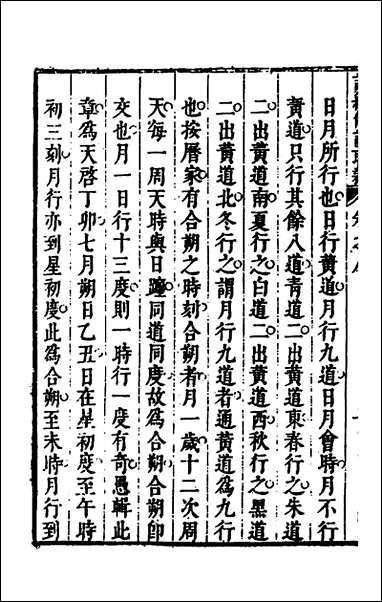 日月所行也日行黄道月行九道日月會時月不行
黄道只行其餘八道青道二出黄道東春行之朱道
二出黄道南夏行之白道二出黄道西秋行之黑道
二出黄道北冬行之謂月行九道者通黄道爲九行
也按曆家有合朔之時刻合朔者月一歲十二次周
天每一周天時與日躔同道同度故爲合朔合朔即
交也月一日行十三度則一時行一度有奇愚輯此
章爲天啓丁卯七月朔日乙丑日在星初度至午時
初三刻月行亦到星初度此爲合朔至未時月行到